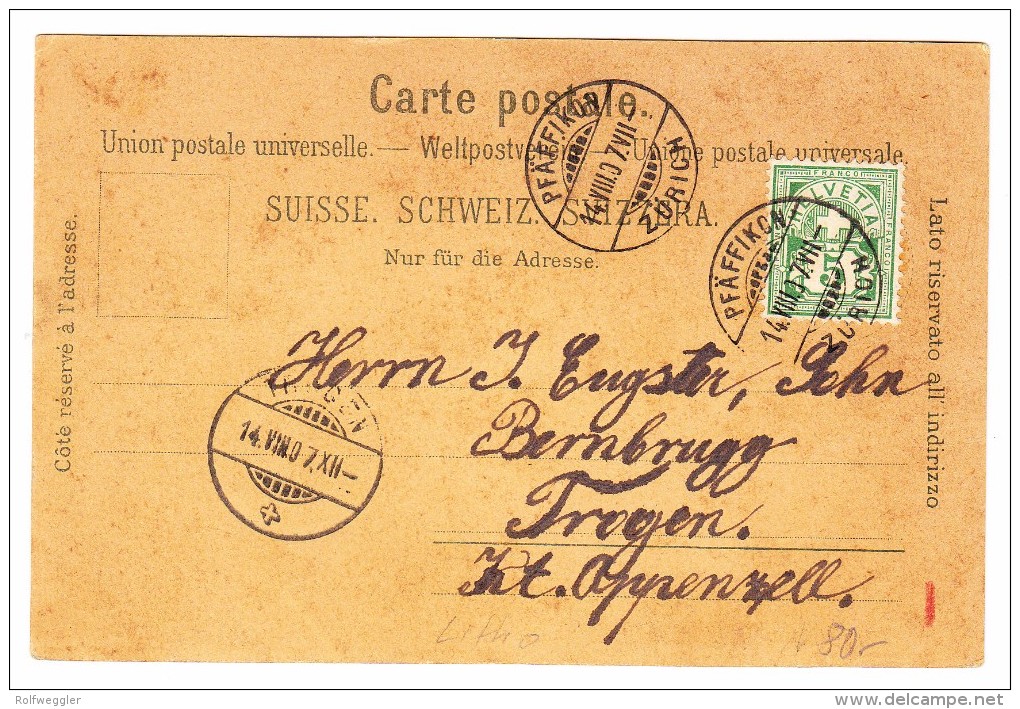 Carte postale.
Union postale universelle. — Weltpostverein — Unione postale universale.
SUISSE. SCHWEIZ. SVIZZERA.
Nur für die Adresse.
Côté réservé à l'adresse.
Lato riservato all' indirizzo
PFÄFFIKON
14.VIII.07.VII-
ZÜRICH
FRANCO
HELVETIA
FRANCO
FRANCO
5
PFÄFFIKON
14.VIII.07.VII-
ZÜRICH
TROGEN
14.VIII.07.XII-
Herrn J. Eugster, Sohn
Bernbrugg
Trogen.
Kt. Appenzell.
Litho
80.-
Rolfweggler
www.delcampe.net